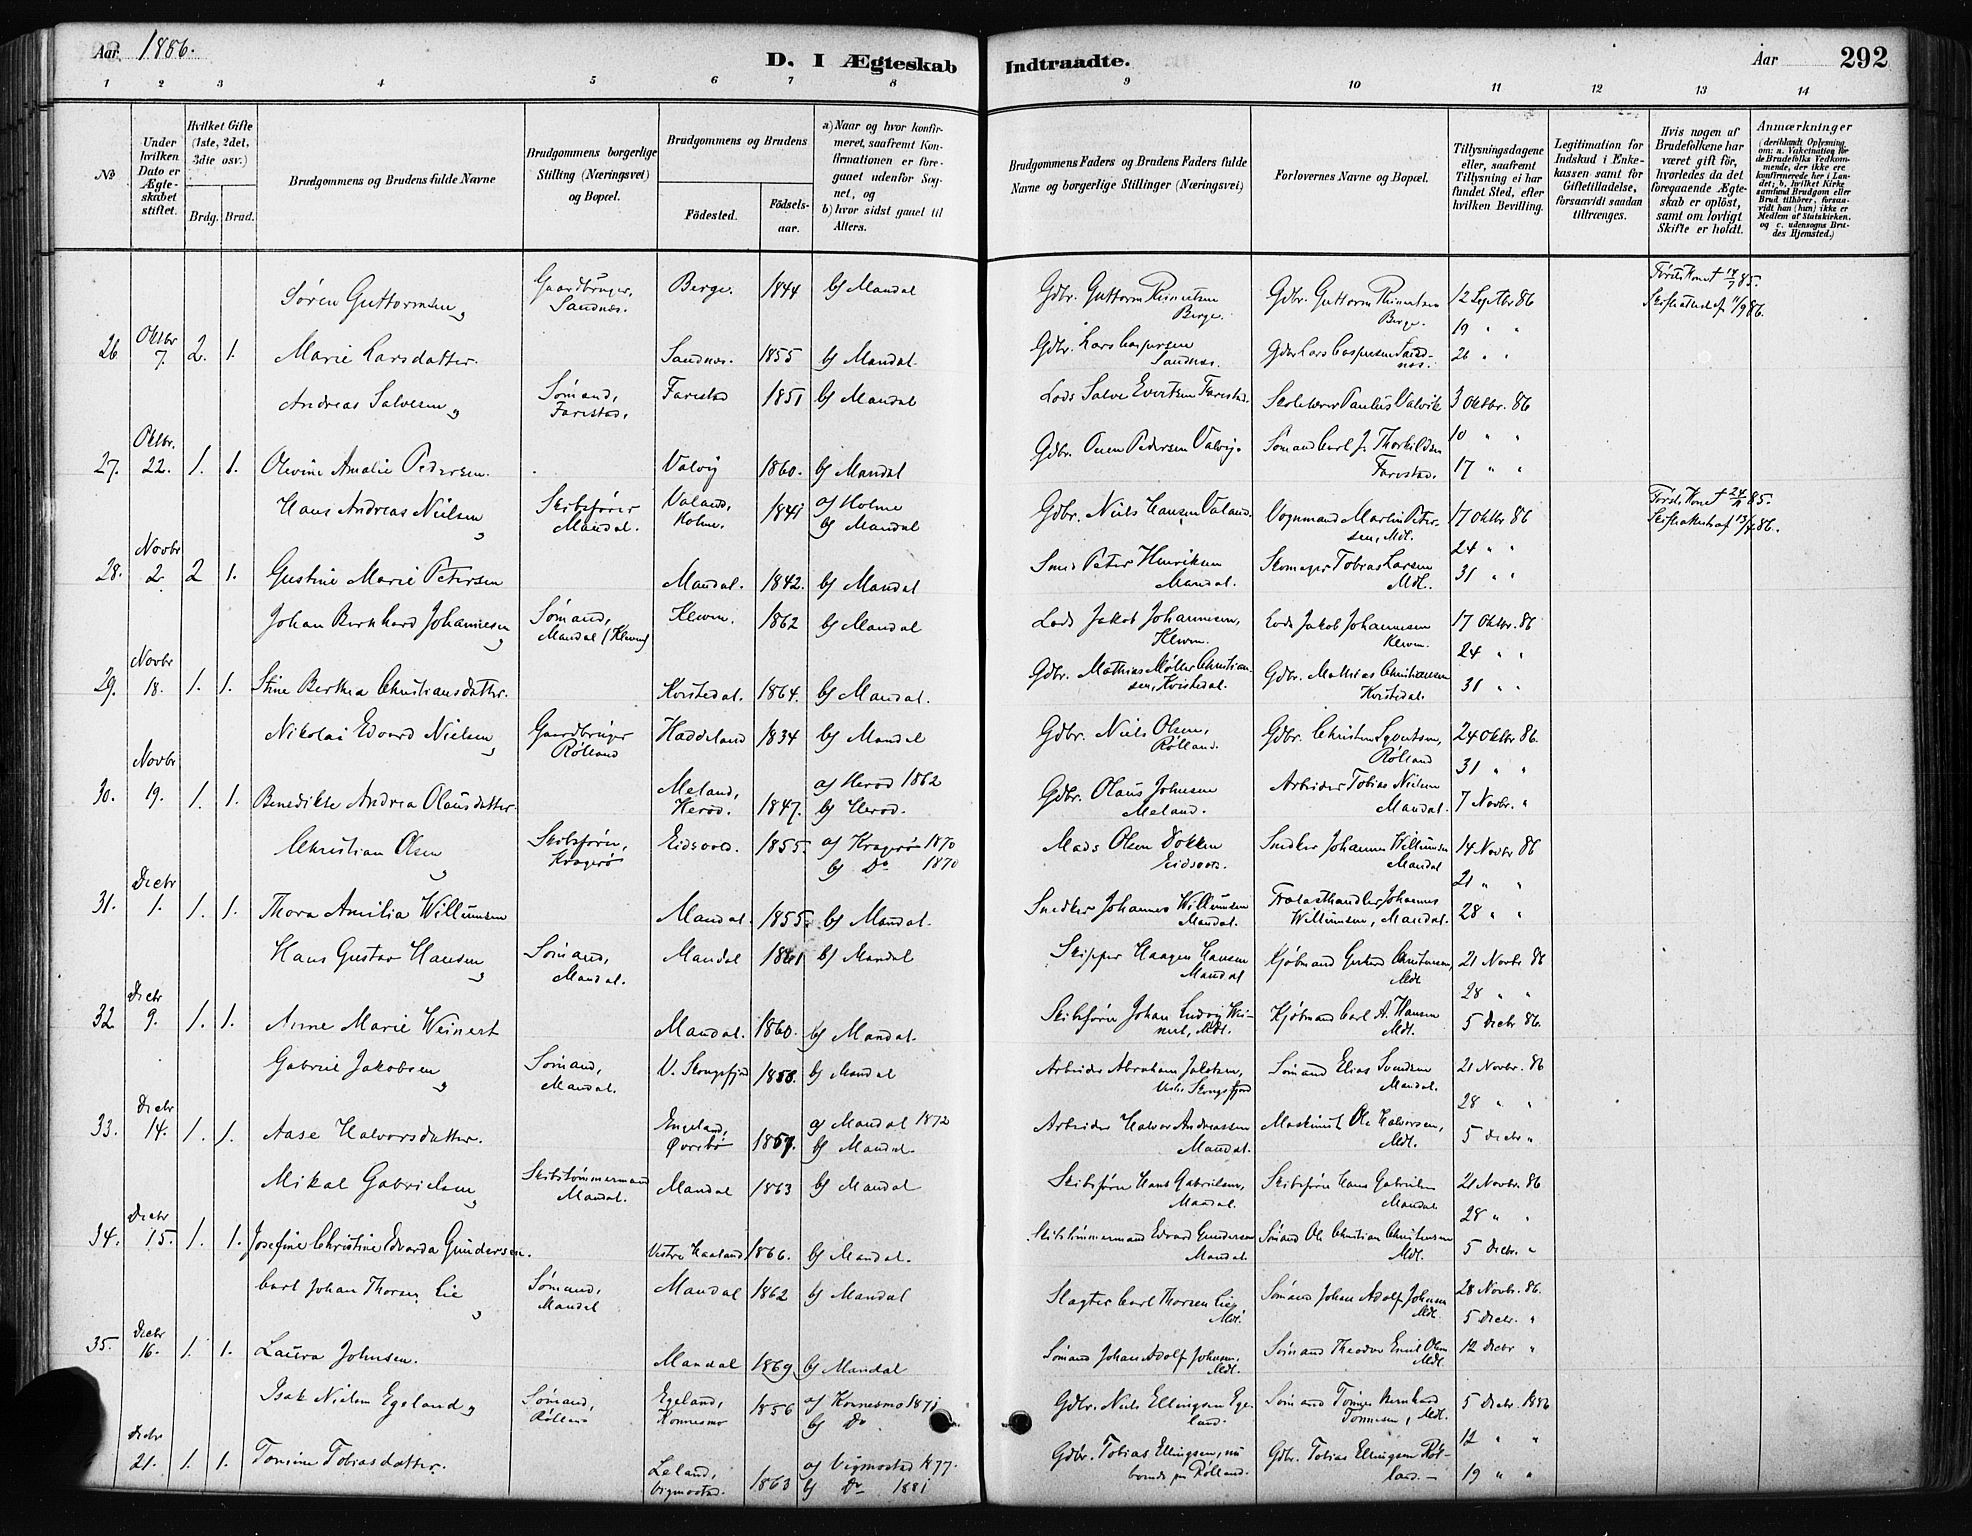 Aar 1886.
D. I Ægteskab Indtraadte.
Aar 292
1 2 3 4 5 6 7 8 9 10 11 12 13 14
No
Under hvilken Dato er Ægteskabet stiftet.
Hvilket Gifte (1ste, 2det, 3die osv.)
Brdg. Brud.
Brudgommens og Brudens fulde Navne
Brudgommens borgerlige Stilling (Næringsvei) og Bopæl.
Brudgommens og Brudens
Fødested. Fødselsaar.
a) Naar og hvor konfirmeret, saafremt Konfirmationen er foregaaet udenfor Sognet, og
b) hvor sidst gaaet til Alters.
Brudgommens Faders og Brudens Faders fulde Navne og borgerlige Stillinger (Næringsvei)
Forlovernes Navne og Bopæl.
Tillysningsdagene eller, saafremt Tillysning ei har fundet Sted, efter hvilken Bevilling.
Legitimation for Indskud i Enkekassen samt for Giftetilladelse, forsaavidt saadan tiltrænges.
Hvis nogen af Brudefolkene har været gift før, hvorledes da det foregaaende Ægteskab er opløst, samt om lovligt Skifte er holdt.
Anmærkninger (deriblandt Oplysning om: a. Vakcination for de Brudefolks Vedkommende, der ikke ere konfirmerede her i Landet; b. hvilket Kirkesamfund Brudgom eller Brud tilhører, forsaavidt han (hun) ikke er Medlem af Statskirken. og c. udensogns Brudes Hjemsted.)
Søren Guttormsen, Gaardbruger, Sandnes. Berge. 1844 b) Mandal Gdbr. Guttorm Reinertsen Berge. Gdbr. Guttorm Reinertsen Berge. 12 Septbr 86 Første Kone † 85.
19 " "
26 Oktbr 7. 2. 1. Marie Larsdatter. Sandnes. 1855 b) Mandal Gdbr. Lars Caspersen Sandnes. Gdbr Lars Caspersen Sandnes. 26 " "
Andreas Salvesen, Sømand, Farestad. Farestad 1851 b) Mandal Lods Salve Evertsen Farestad. Skolelærer Paulus Valvik 3 Oktbr. 86
10 " "
27. Oktbr. 22. 1. 1. Olevine Amalie Pedersen. Valvig 1860. b) Mandal Gdbr. Onen Pedersen Valvig. Sømand Carl J. Thorkildsen Farestad. 17 " "
Hans Andreas Nielsen, Skibsfører Mandal. Valand, Holme. 1841 a) Holme b) Mandal Gdbr. Niels Hansen Valand. Vognmand Martin Petersen, Mdl. 17 Oktbr 86 Første Kone † 85.
24 " "
28. Novbr 2. 2 1. Gustine Marie Petersen Mandal. 1842. b) Mandal Smed Peter Henriksen Mandal. Skomager Tobias Larsen Mdl. 31 " "
Johan Bernhard Johannesen, Sømand, Mandal (Kleven) Kleven. 1862 b) Mandal Lods Jakob Johannesen, Kleven. Lods Jakob Johannesen Kleven. 17 Oktbr. 86
24 " "
29. Novbr 18. 1. 1. Stine Berthea Christiansdatter. Kvistedal. 1864. b) Mandal. Gdbr. Mathias Møller Christiansen, Kvistedal. Gdbr. Mathias Christiansen Kvistedal. 31 " "
Nikolai Edvard Nielsen, Gaardbruger Rølland Haddeland 1834 b) Mandal Gdbr. Niels Olsen, Rølland. Gdbr. Christen Syvertsen, Rølland 24 Oktbr 86.
31 " "
30. Novbr 19. 1. 1. Benedikte Andrea Olausdatter. Meland, Herod. 1847. a) Herod 1862 b) Herod. Gdbr. Olaus Johnsen Meland. Arbeider Tobias Nielsen Mandal. 7 Novbr. "
Christian Olsen, Skibsfører, Kragerø Eidsvold. 1855. a) Kragerø 1870 b) Do 1870 Mads Olsen Dokken Eidsvold. Snedker Johannes Willumsen Mandal 14 Novbr 86
21 " "
31. Decbr 1. 1. 1. Thora Amilia Willumsen Mandal. 1855. b) Mandal. Snedker Johannes Willumsen Mandal. Trælasthandler Johannes Willumsen, Mandal. 28 " "
Hans Gustav Hansen, Sømand, Mandal. Mandal 1861 b) Mandal Skipper Haagen Hansen Mandal Kjøbmand Gerhard Christensen, Mdl. 21 Novbr. 86
28 " "
32 Decbr 9. 1. 1. Anne Marie Weinert Mandal. 1860. b) Mandal. Skibsfører Johan Ludvig Weinert, Mdl. Kjøbmand Carl A. Hansen Mdl. 5 Decbr 86.
Gabriel Jakobsen, Sømand, Mandal. V. Skongsfjord 1858. b) Mandal Arbeider Abraham Jakobsen, Vestre Skongsfjord Sømand Elias Svendsen Mandal. 21 Novbr. 86
28 " "
33. Decbr 14. 1. 1. Aase Halvorsdatter. Engeland, Øvrebø 1857. a) Mandal 1872 b) Mandal. Arbeider Halvor Andreassen Mandal. Maskinist Ole Halvorsen, Mdl. 5 Decbr "
Mikal Gabrielsen, Skibstømmermand Mandal. Mandal 1863 b) Mandal Skibsfører Hans Gabrielsen, Mandal. Skibsfører Hans Gabrielsen Mandal. 21 Novbr. 86
28 " "
34. Decbr 15. 1. 1. Josefine Christine Edvarda Gundersen. Vestre Haaland 1866. b) Mandal. Skibstømmermand Edvard Gundersen Mandal. Sømand Ole Christian Christensen Mdl. 5 Decbr. "
Carl Johan Thorsen Lie, Sømand, Mandal Mandal 1862 b) Mandal Slagter Carl Thorsen Lie, Mdl. Sømand Johan Adolf Johnsen Mdl. 28 Novbr. 86.
5 Decbr. "
35. Decbr 16. 1. 1. Laura Johnsen. Mandal 1869 b) Mandal Sømand Johan Adolf Johnsen, Mdl. Sømand Theodor Emil Olsen Mdl. 12 Decbr "
Isak Nielsen Egeland, Sømand, Rølland Egeland, Konnesmo 1856 a) Konnesmo 1871 b) Do Gdbr. Niels Ellingsen Egeland. Sømand Tønnes Bernhard Tønnesen, Mdl. 5 Decbr 1886
12 " "
Decbr 21. 1. 1. Tomine Tobiasdatter. Leland, Vigmostad. 1863 a) Vigmostad 1877. b) Do 1881 Gdbr. Tobias Ellingsen, nu boende paa Rølland. Gdbr. Tobias Ellingsen Rølland. 19 " "